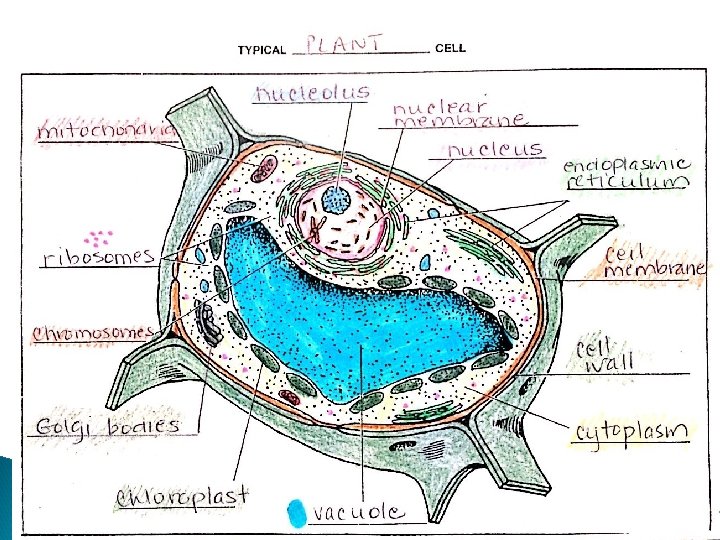 TYPICAL PLANT CELL
nucleolus
nuclear
membrane
mitochondria
nucleus
endoplasmic
reticulum
ribosomes
cell
membrane
chromosomes
cell
wall
Golgi bodies
cytoplasm
chloroplast
vacuole